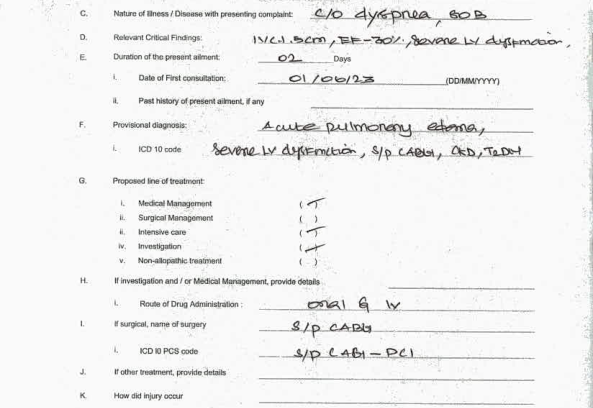 C. Nature of Illness / Disease with presenting complaint: c/o dyspnea, SOB
D. Relevant Critical Findings: IVC 1.5cm, EF-30%, Severe LV dysfunction,
E. Duration of the present ailment: 02 Days
i. Date of First consultation: 01/06/23 (DD/MM/YYYY)
ii. Past history of present ailment, if any
F. Provisional diagnosis: Acute pulmonary edema,
i. ICD 10 code Severe LV dysfunction, S/p CABG, CKD, T2DM
G. Proposed line of treatment:
i. Medical Management ( )
ii. Surgical Management ( )
ii. Intensive care ( )
iv. Investigation ( )
v. Non-allopathic treatment ( )
H. If investigation and / or Medical Management, provide details
i. Route of Drug Administration : oral & IV
I. If surgical, name of surgery S/p CABG
i. ICD I0 PCS code S/p CABG - PCI
J. If other treatment, provide details
K. How did injury occur